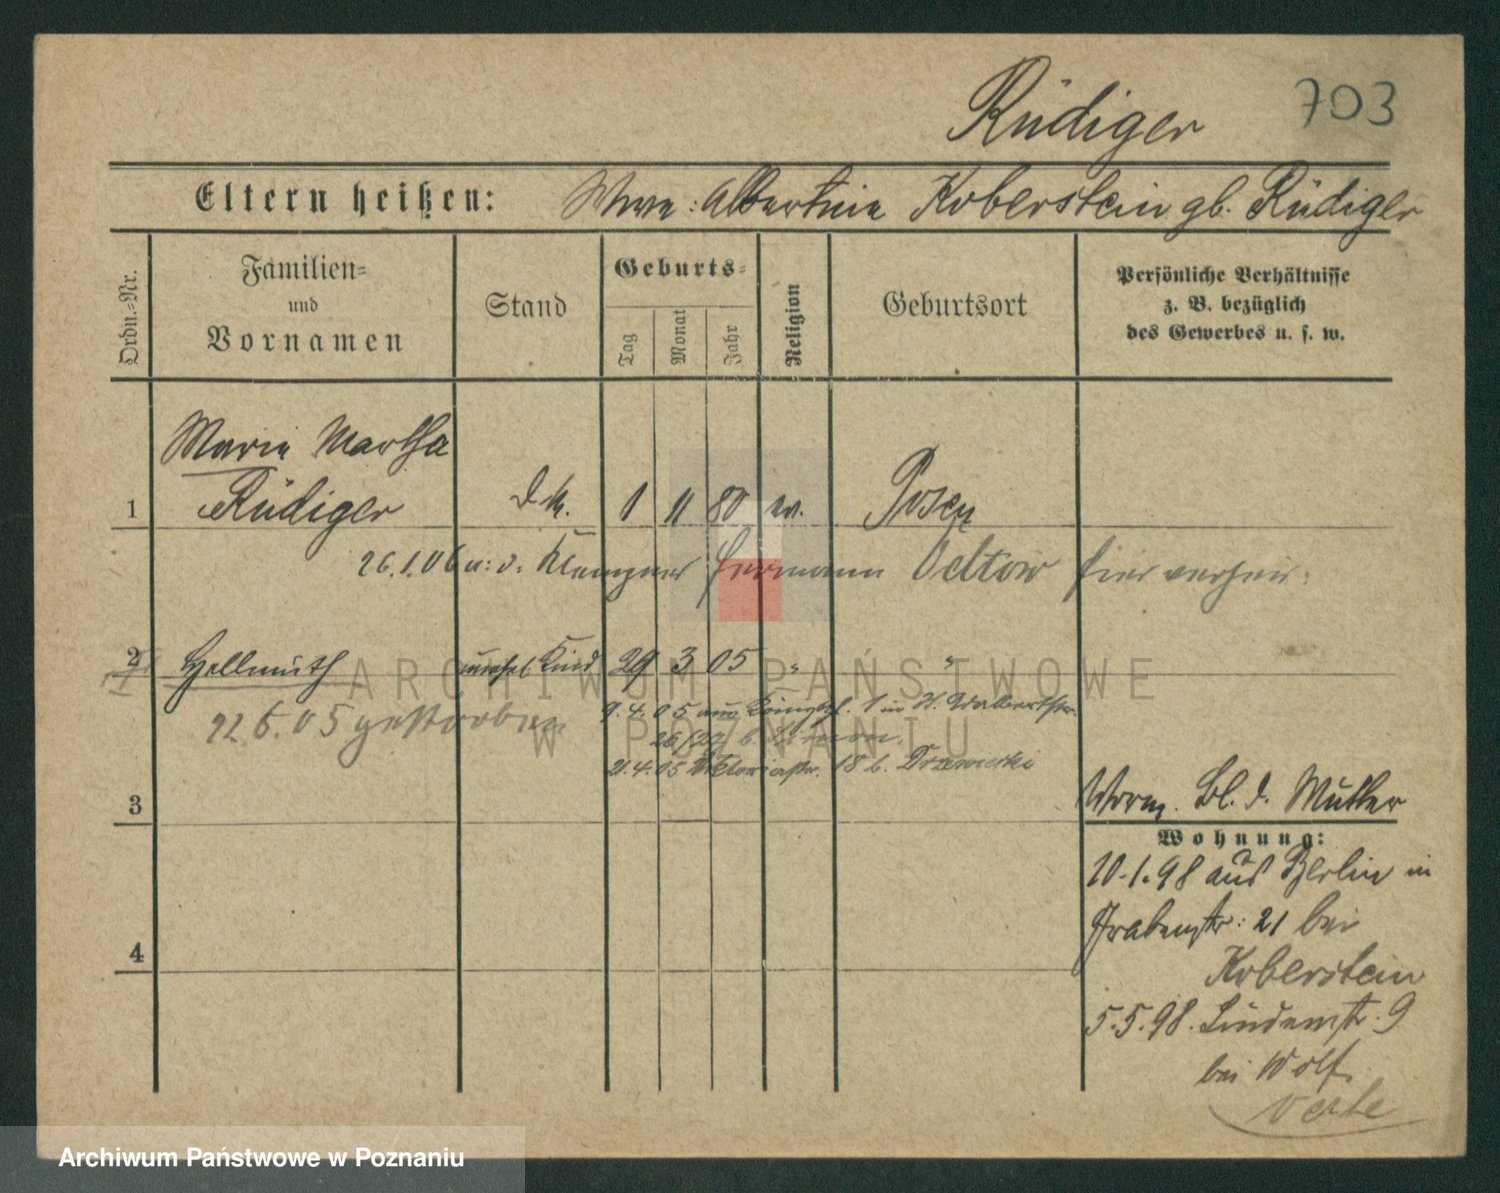 Rüdiger
703
Eltern heißen: Wwe: Albertine Koberstein gb. Rüdiger
Ordn.-Nr.
Familien-
und
Vornamen
Stand
Geburts-
Tag
Monat
Jahr
Religion
Geburtsort
Persönliche Verhältnisse
z. B. bezüglich
des Gewerbes u. s. w.
Marie Martha
1 Rüdiger 1 11 80 ev. Posen
26.1.06 m: d. Klempner Hermann Oeltow hier verheir.
2 Hellmuth unehel. Kind 29 3 05 " "
22.6.05 gestorben
9.4.05 aus Königspl. 1 in
21.4.05 Viktoriastr. 18 b.
3
Vorm. Bl. d. Mutter
Wohnung:
10.1.98 aus Berlin in
Grabenstr: 21 bei
Koberstein
4
5.5.98. Lindenstr. 9
bei Wolf.
verte
ARCHIWUM PAŃSTWOWE
W POZNANIU
Archiwum Państwowe w Poznaniu